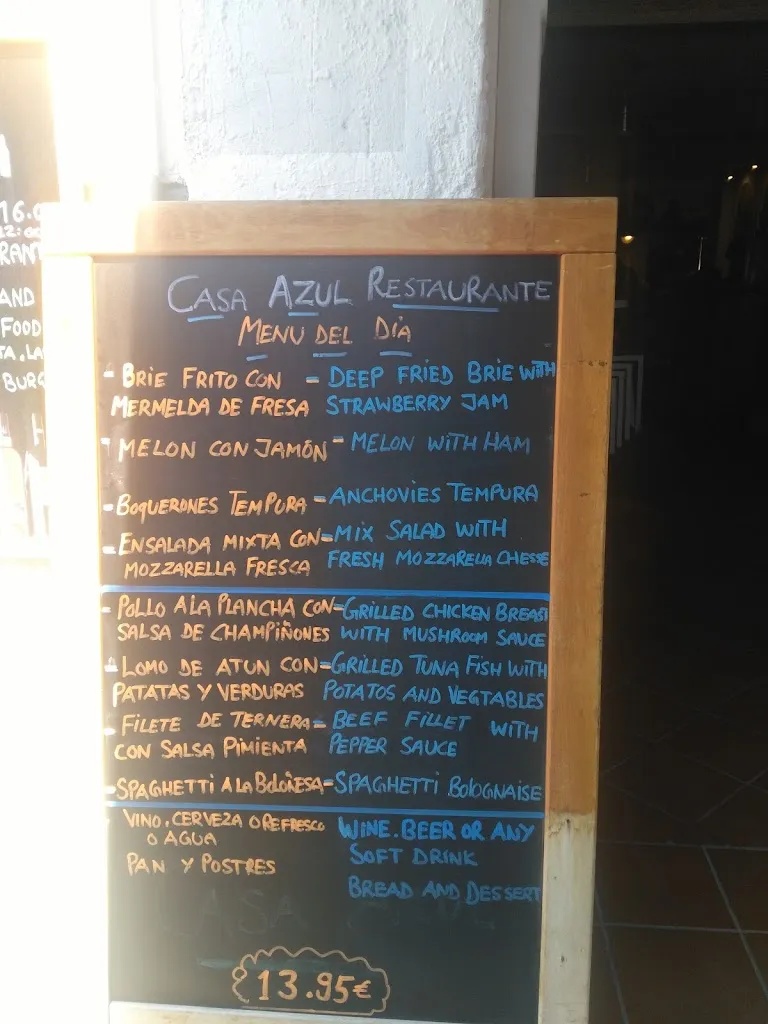 16.0
12:00
RANT
AND
FOOD
TA. LA
BURG
CASA AZUL RESTAURANTE
MENU DEL DIA
- BRIE FRITO CON - DEEP FRIED BRIE WITH
MERMELDA DE FRESA STRAWBERRY JAM
- MELON CON JAMÓN - MELON WITH HAM
- BOQUERONES TEMPURA - ANCHOVIES TEMPURA
- ENSALADA MIXTA CON - MIX SALAD WITH
MOZZARELLA FRESCA FRESH MOZZARELLA CHESSE
- POLLO A LA PLANCHA CON - GRILLED CHICKEN BREAST
SALSA DE CHAMPIÑONES WITH MUSHROOM SAUCE
- LOMO DE ATUN CON - GRILLED TUNA FISH WITH
PATATAS Y VERDURAS POTATOS AND VEGTABLES
- FILETE DE TERNERA - BEEF FILLET WITH
CON SALSA PIMIENTA PEPPER SAUCE
- SPAGHETTI A LA BOLOÑESA - SPAGHETTI BOLOGNAISE
VINO, CERVEZA O REFRESCO WINE. BEER OR ANY
O AGUA SOFT DRINK
PAN Y POSTRES BREAD AND DESSERT
13.95€